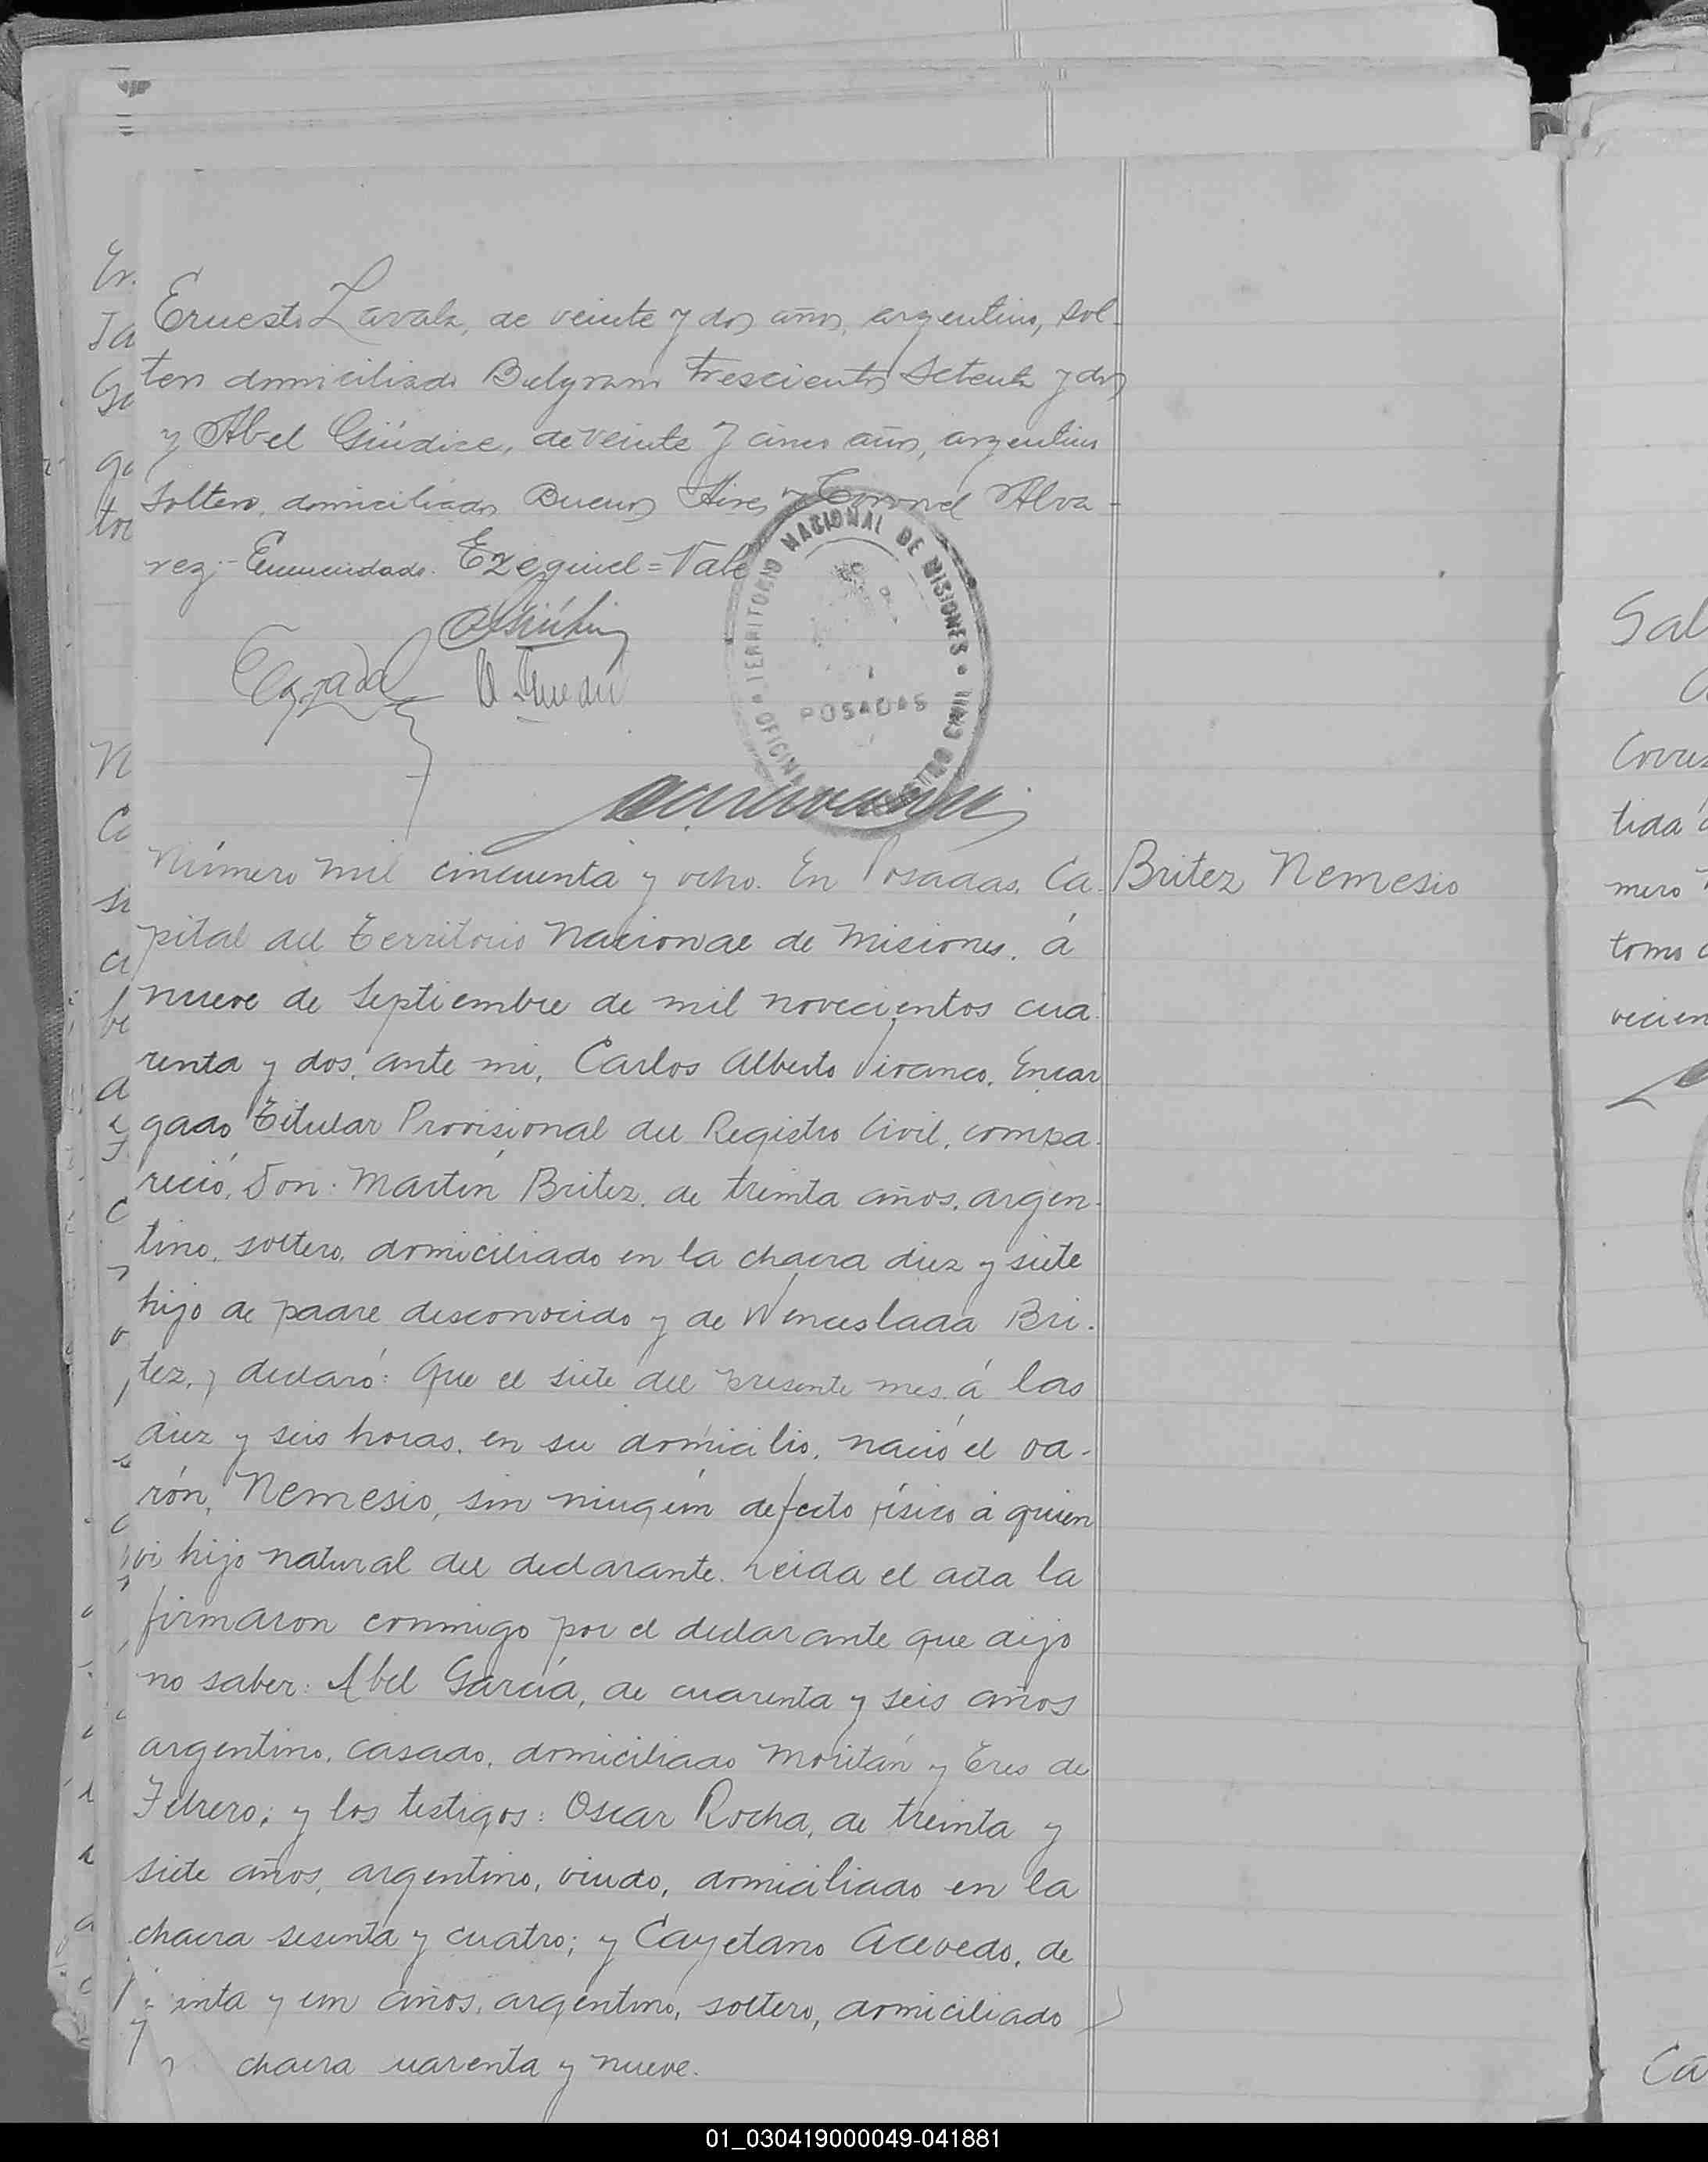 Ernesto Zavala, de veinte y dos años, argentino, sol-
tero domiciliado Belgrano trescientos setenta y dos
y Abel Giúdice, de veinte y cinco años, argentino
soltero, domiciliado Buenos Aires y Coronel Alva-
rez;- Enmendado. Ezequiel = Vale
OFICINA TERRITORIO NACIONAL DE MISIONES • CIVIL
POSADAS
Número mil cincuenta y ocho. En Posadas, Ca-
Britez Nemesio
pital del Territorio Nacional de Misiones, á
nueve de Septiembre de mil novecientos cua-
renta y dos, ante mi, Carlos Alberto Vivanco, Encar
gado Titular Provisional del Registro Civil, compa-
reció, Don: Martín Britez, de treinta años, argen-
tino, soltero, domiciliado en la chacra diez y siete
hijo de padre desconocido y de Wenceslada Bri-
tez, y declaró: Que el siete del presente mes á las
diez y seis horas, en su domicilio, nació el va-
rón, Nemesio, sin ningún defecto físico á quien
vi hijo natural del declarante. Leida el acta la
firmaron conmigo por el declarante que dijo
no saber: Abel García, de cuarenta y seis años
argentino, casado, domiciliado Moritán y Tres de
Febrero; y los testigos: Oscar Rocha, de treinta y
siete años, argentino, viudo, domiciliado en la
chacra sesenta y cuatro; y Cayetano Acevedo, de
inta y un años, argentino, soltero, domiciliado
chacra uarenta y nueve.
Sal
tida
mero
tomo
vecien
Ca
01_030419000049-041881